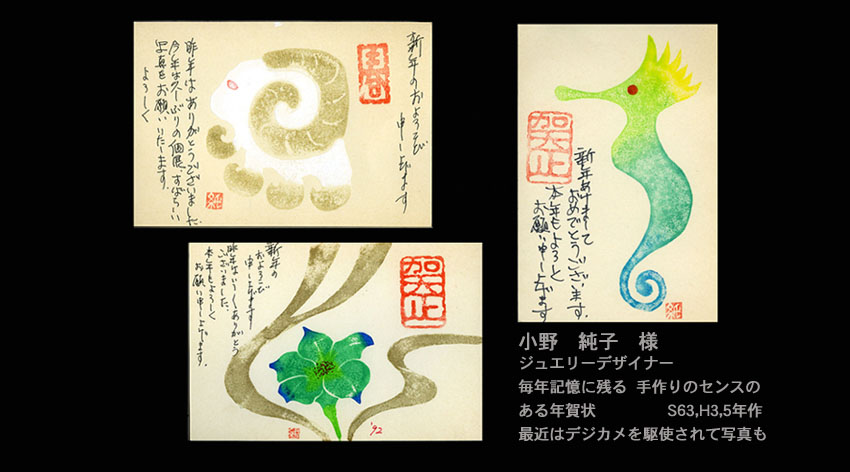 新年のおよろこび
申し上げます
昨年はありがとうございました
今年は久しぶりの個展、すばらしい
写真をお願いいたします。
よろしく
純
賀正
新年あけまして
おめでとうございます。
本年もよろしく
お願い申し上げます
純
新年の
およろこび
申し上げます
昨年は
ありがとう
ございました。
本年もよろしく
お願い申し上げます。
賀正
'92
小野　純子　様
ジュエリーデザイナー
毎年記憶に残る 手作りのセンスの
ある年賀状　　　　　S63,H3,5年作
最近はデジカメを駆使されて写真も